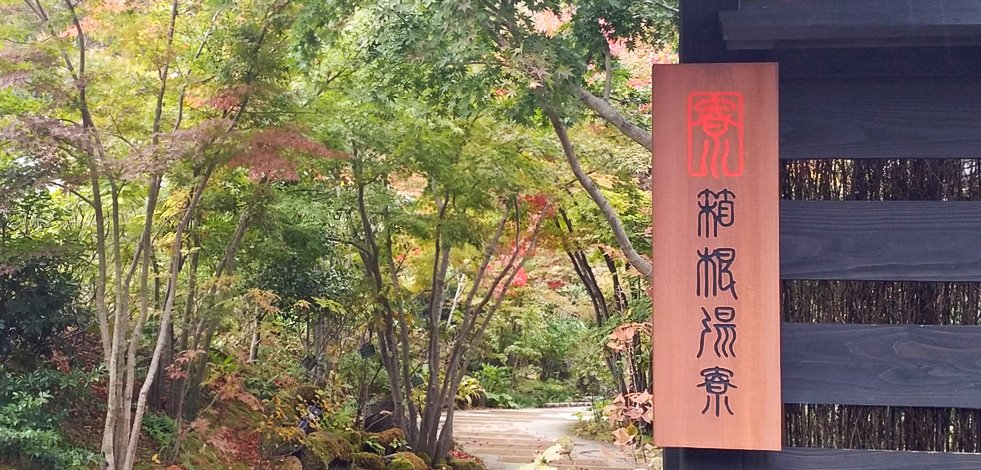 寮
箱根湯寮